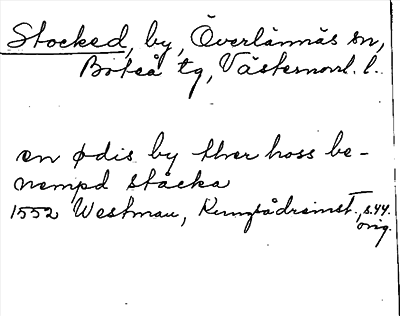 Stocked, by, Överlännäs sn,
Boteå tg, Västernorrl. l.
en ødis by ther hoss be-
nempd stäcka
1552 Westman, Kungsådreinst., s.44.
orig.